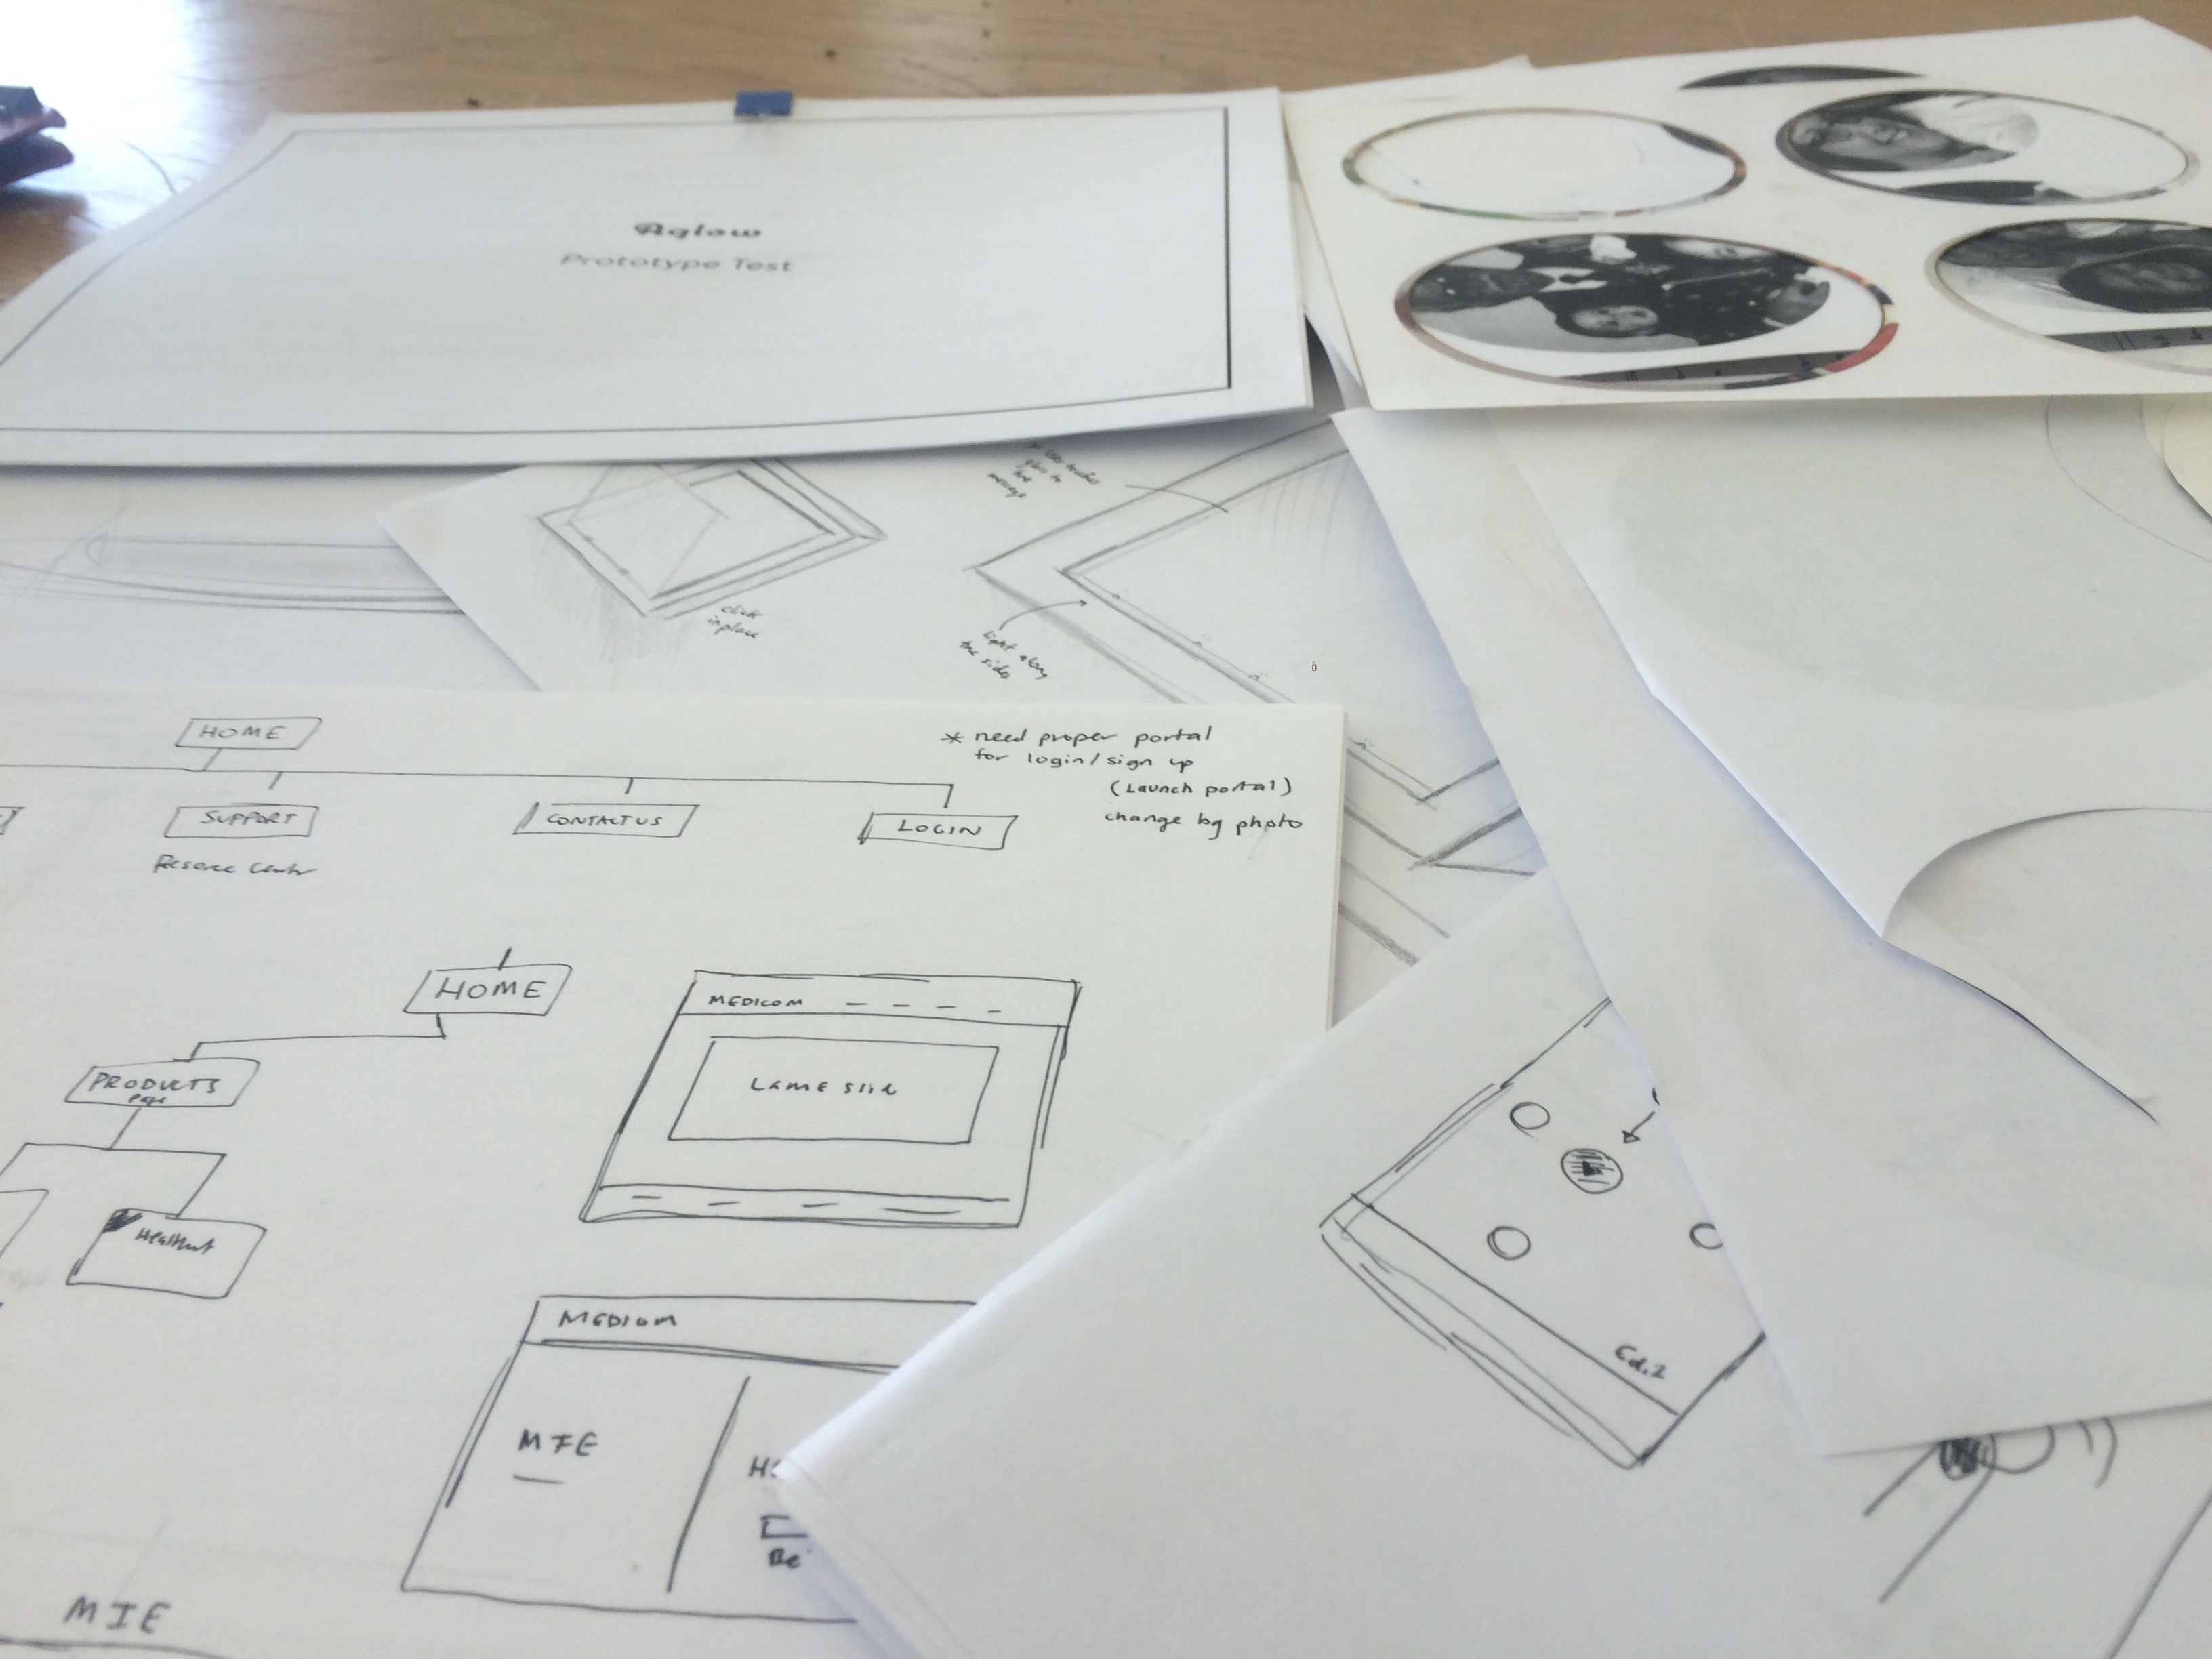 Aglow
Prototype Test
click
in place
light along
the sides
HOME
SUPPORT
CONTACT US
LOGIN
* need proper portal
for login/sign up
(Launch portal)
change bg photo
HOME
PRODUCTS
page
MEDICOM
LAME
MEDIOM
MIE
MIE